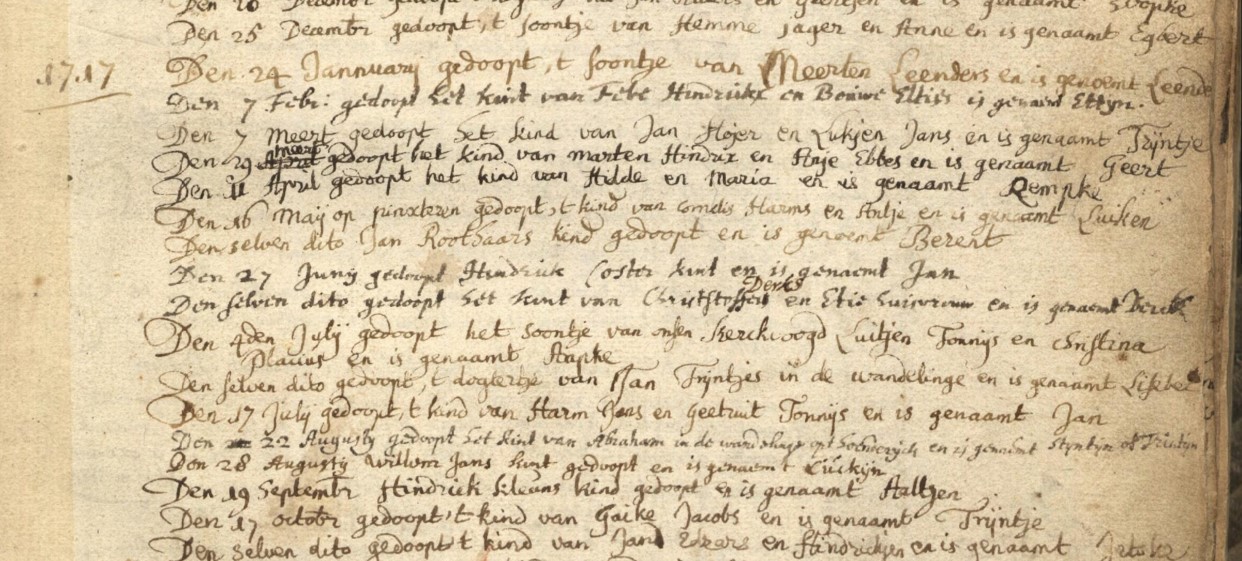 Den 20 Decembr gedoopt en is genaamt Evopke
Den 25 Decembr gedoopt, 't soontje van Hemme Jager en Anne en is genaamt Egbert
1717
Den 24 Jannuarij gedoopt, t soontje van Meerten Leenders en is genoemt Leende
Den 7 Febr: gedoopt het kint van Febe Hindrickx en Bouwe Eltiss is genaemt Eltijn.
Den 7 Meert gedoopt het kind van Jan Hojer en Lukjen Jans en is genaamt Trijntje
Den 29 Meert gedoopt het kind van marten Hindrix en Anje Ebbes en is genaamt Geert
Den 11 April gedoopt het kind van Hilde en Maria en is genaamt Rempke
Den 16 Maij op pinxteren gedoopt, t kind van Cornelis Harms en Antje en is genaamt Luiken
Den selven dito Jan Roothaars kind gedoopt en is genoemt Berent
Den 27 Junij gedoopt Hindrick Coster kint en is genaemt Jan
Den selven dito gedoopt het kint van Christoffer Derks en Etie huisvrouw en is genaemt Derck
Den 4den Julij gedoopt het soontje van onsen kerckvoogd Luitjen Tonnijs en Christina
Placius en is genaamt Aapke
Den selven dito gedoopt, t dogtertje van Jan Trijntjes in de wandelinge en is genaamt Lisebet
Den 17 Julij gedoopt, t kind van Harm Jans en Geetruit Tonnijs en is genaamt Jan
Den 22 Augustij gedoopt het kint van Abraham in de wandeling opt en is genaemt Stijntijn of Trintijn
Den 28 Augustij Willem Jans kint gedoopt en is genaemt Luckijn
Den 19 Septembr Hindrick kleuns kind gedoopt en is genaamt Aaltjen
Den 17 octobr gedoopt 't kind van Gaike Jacobs en is genaamt Trijntje
Den selven dito gedoopt 't kind van Jan Edzers en Hindrickjen en is genaamt